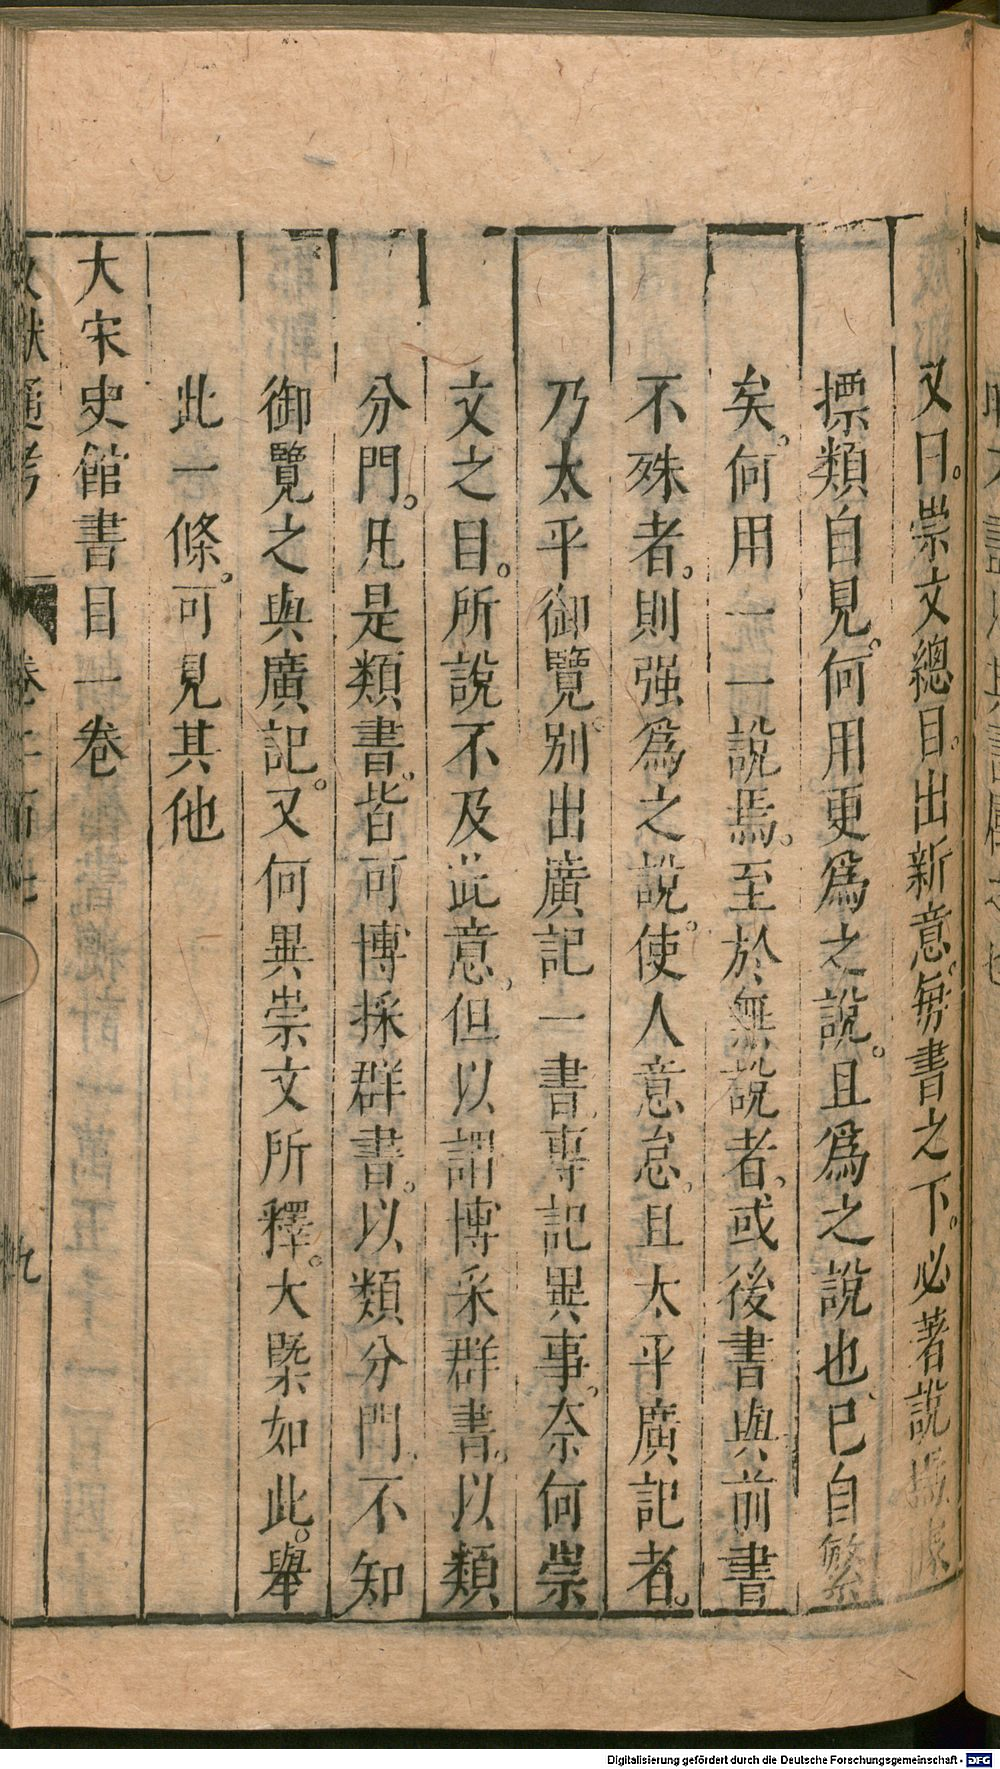 又曰。崇文總目。出新意。每書之下。必著說據
摽類自見。何用更爲之說。且爲之說也、已自繁
矣。何用一一說焉。至於無說者、或後書與前書
不殊者。則强爲之說。使人意怠。且太平廣記者。
乃太平御覽。別出廣記一書、專記異事。奈何崇
文之目。所說不及此意。但以謂博采群書。以類
分門。凡是類書。皆可博採群書。以類分門、不知
御覽之與廣記。又何異崇文所釋。大槩如此。舉
此一條。可見其他
大宋史館書目一卷
文獻通考
卷二百七
九
Digitalisierung gefördert durch die Deutsche Forschungsgemeinschaft - DFG